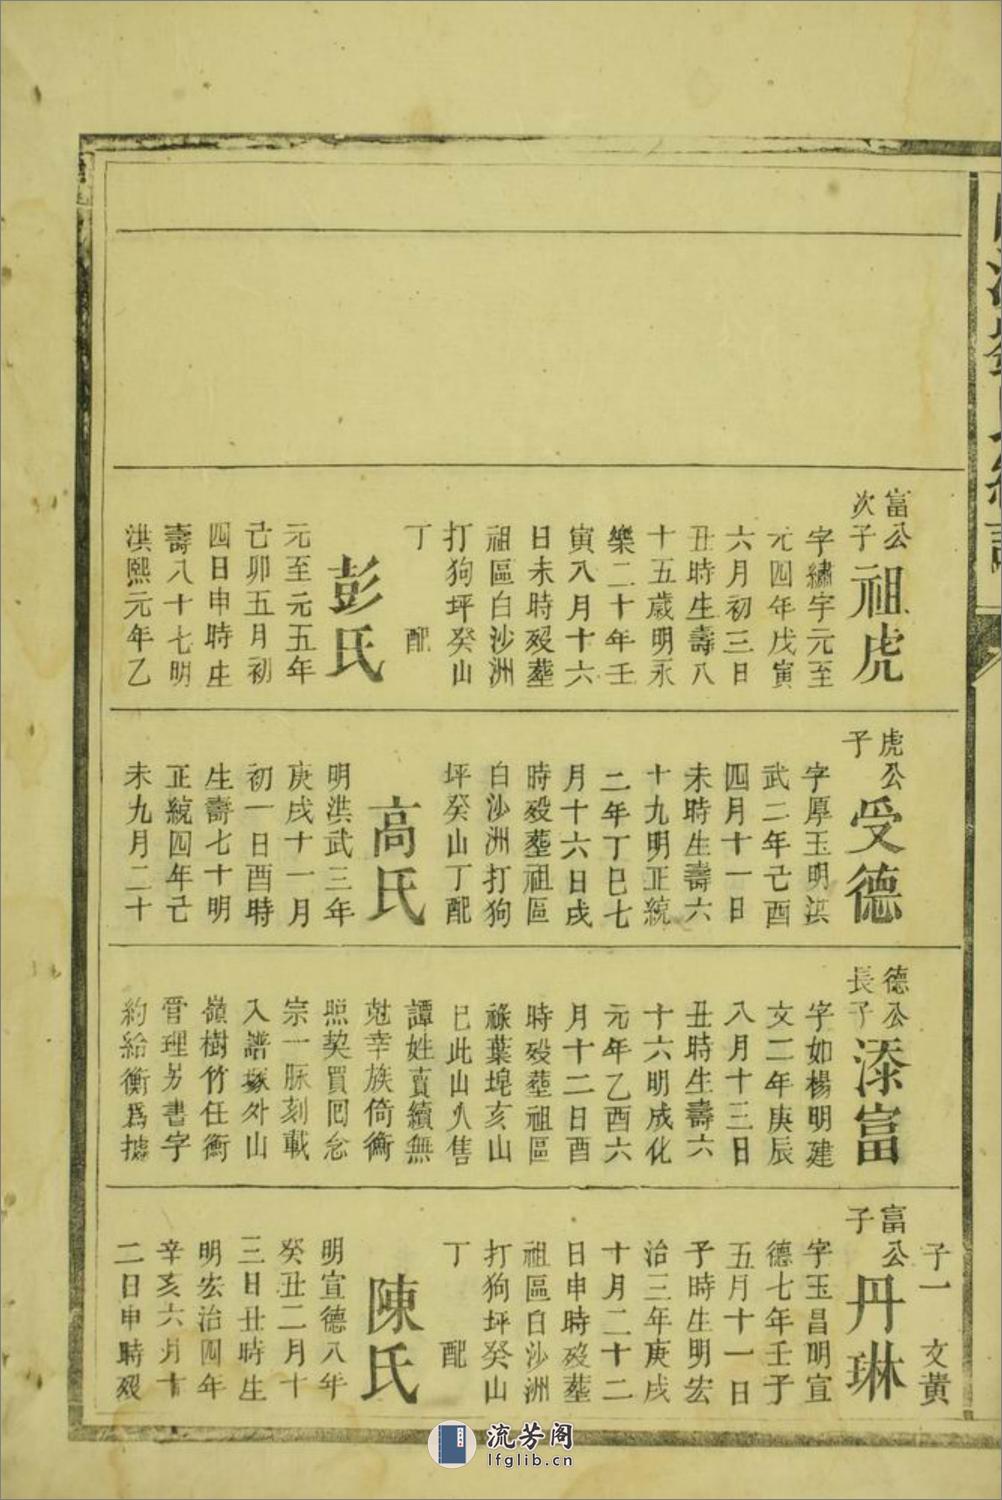 富公
次子
祖虎
字繡宇元至
元四年戊寅
六月初三日
丑時生壽八
十五歲明永
樂二十年壬
寅八月十六
日未時歿塟
祖區白沙洲
打狗坪癸山
丁 配
彭氏
元至元五年
己卯五月初
四日申時生
壽八十七明
洪熙元年乙
虎公
子
受德
字厚玉明洪
武二年己酉
四月十一日
未時生壽六
十九明正統
二年丁巳七
月十六日戌
時歿塟祖區
白沙洲打狗
坪癸山丁配
高氏
明洪武三年
庚戌十一月
初一日酉時
生壽七十明
正統四年己
未九月二十
德公
長子
添富
字如楊明建
文二年庚辰
八月十三日
丑時生壽六
十六明成化
元年乙酉六
月十二日酉
時歿塟祖區
祿葉埠亥山
巳此山久售
譚姓賣續無
尅幸族倚衡
照契買回念
宗一脈刻載
入譜塚外山
嶺樹竹任衡
管理另書字
約給衡爲據
子一 文黃
富公
子
丹琳
字玉昌明宣
德七年壬子
五月十一日
子時生明宏
治三年庚戌
十月二十二
日申時歿塟
祖區白沙洲
打狗坪癸山
丁 配
陳氏
明宣德八年
癸丑二月十
三日丑時生
明宏治四年
辛亥六月十
二日申時歿
流芳阁
lfglib.cn